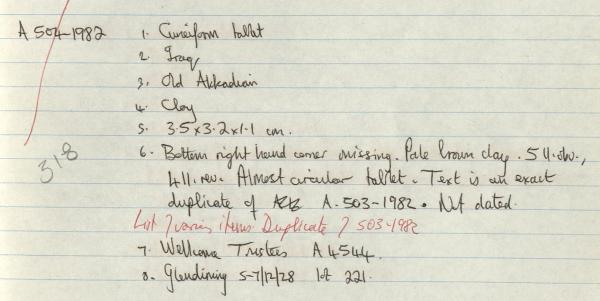 A 504-1982 1. Cuneiform tablet
2. Iraq
3. Old Akkadian
4. Clay
5. 3.5 x 3.2 x 1.1 cm.
318
6. Bottom right hand corner missing. Pale brown clay. 5 ll. obv.,
4 ll. rev. Almost circular tablet. Text is an exact
duplicate of A. 503-1982. Not dated.
List ? various items. Duplicate ? 503-1982
7. Wellcome Trustees A 4544.
8. Glendining 5-7/12/28 lot 221.